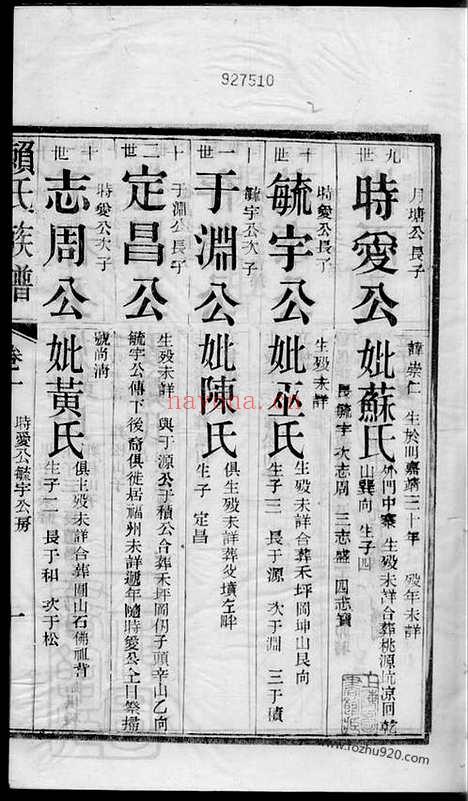 927510
九世
月塘公長子
時愛公
諱崇仁 生於明嘉靖三十年 歿年未詳
妣蘇氏
外門中寨 生歿未詳合葬桃源坑凉回乾
山巽向 生子四
長毓宇 次志周 三志盛 四志寶
十世
時愛公長子
毓宇公
生歿未詳
妣巫氏
生歿未詳合葬禾坪岡坤山艮向
生子三 長于源 次于淵 三于積
十一世
毓宇公次子
于淵公
妣陳氏
俱生歿未詳葬父墳左畔
生子 定昌
十二世
于淵公長子
定昌公
生歿未詳 與于源公于積公合葬禾坪岡仍子頭辛山乙向
毓宇公傳下後裔俱徙居福州未詳遞年隨時愛公全日祭掃
十世
時愛公次子
志周公
號尚清
妣黃氏
俱生歿未詳合葬圓山石佛祖背
生子二 長于和 次于松
賴氏族譜
卷一
時愛公毓宇公房
一
nayona.cn
www.fozhu920.com